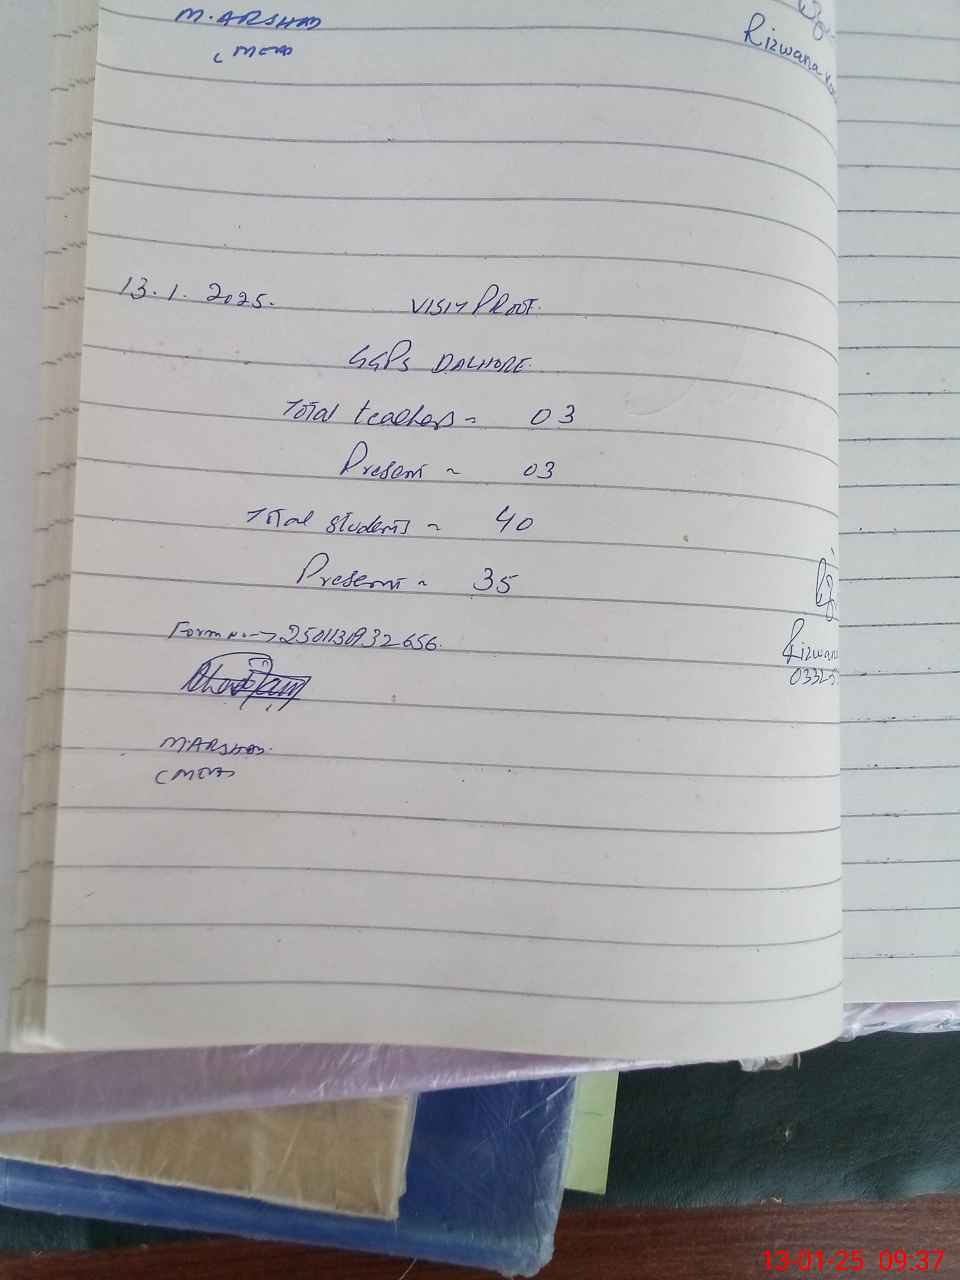 M. ARSHAD
(MEA)
Rizwana
13.1.2025. VISIT PROOF.
GGPS DALHORE
Total teachers = 03
Present = 03
Total students = 40
Present = 35
Form No. → 2501130932656
Rizwana
0332-5
M. ARSHAD.
(MEA)
13-01-25 09:37